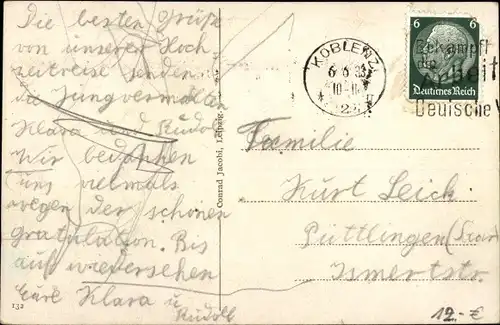 Die besten Grüße
von unserer Hoch-
zeitreise senden
die Jungvermählten
Klara und Rudolf
Wir bedanken
uns vielmals
wegen der schönen
gratulation. Bis
auf wiedersehen
Eure Klara u.
Rudolf
132
Conrad Jacobi, Leipzig.
KOBLENZ
6.6.35
10-11
*2k
6 6
Deutsches Reich
Bekämpft
die
Arbeit
Deutsche
Familie
Kurt Leick
Püttlingen (Saar)
Ismertstr.
12.-€